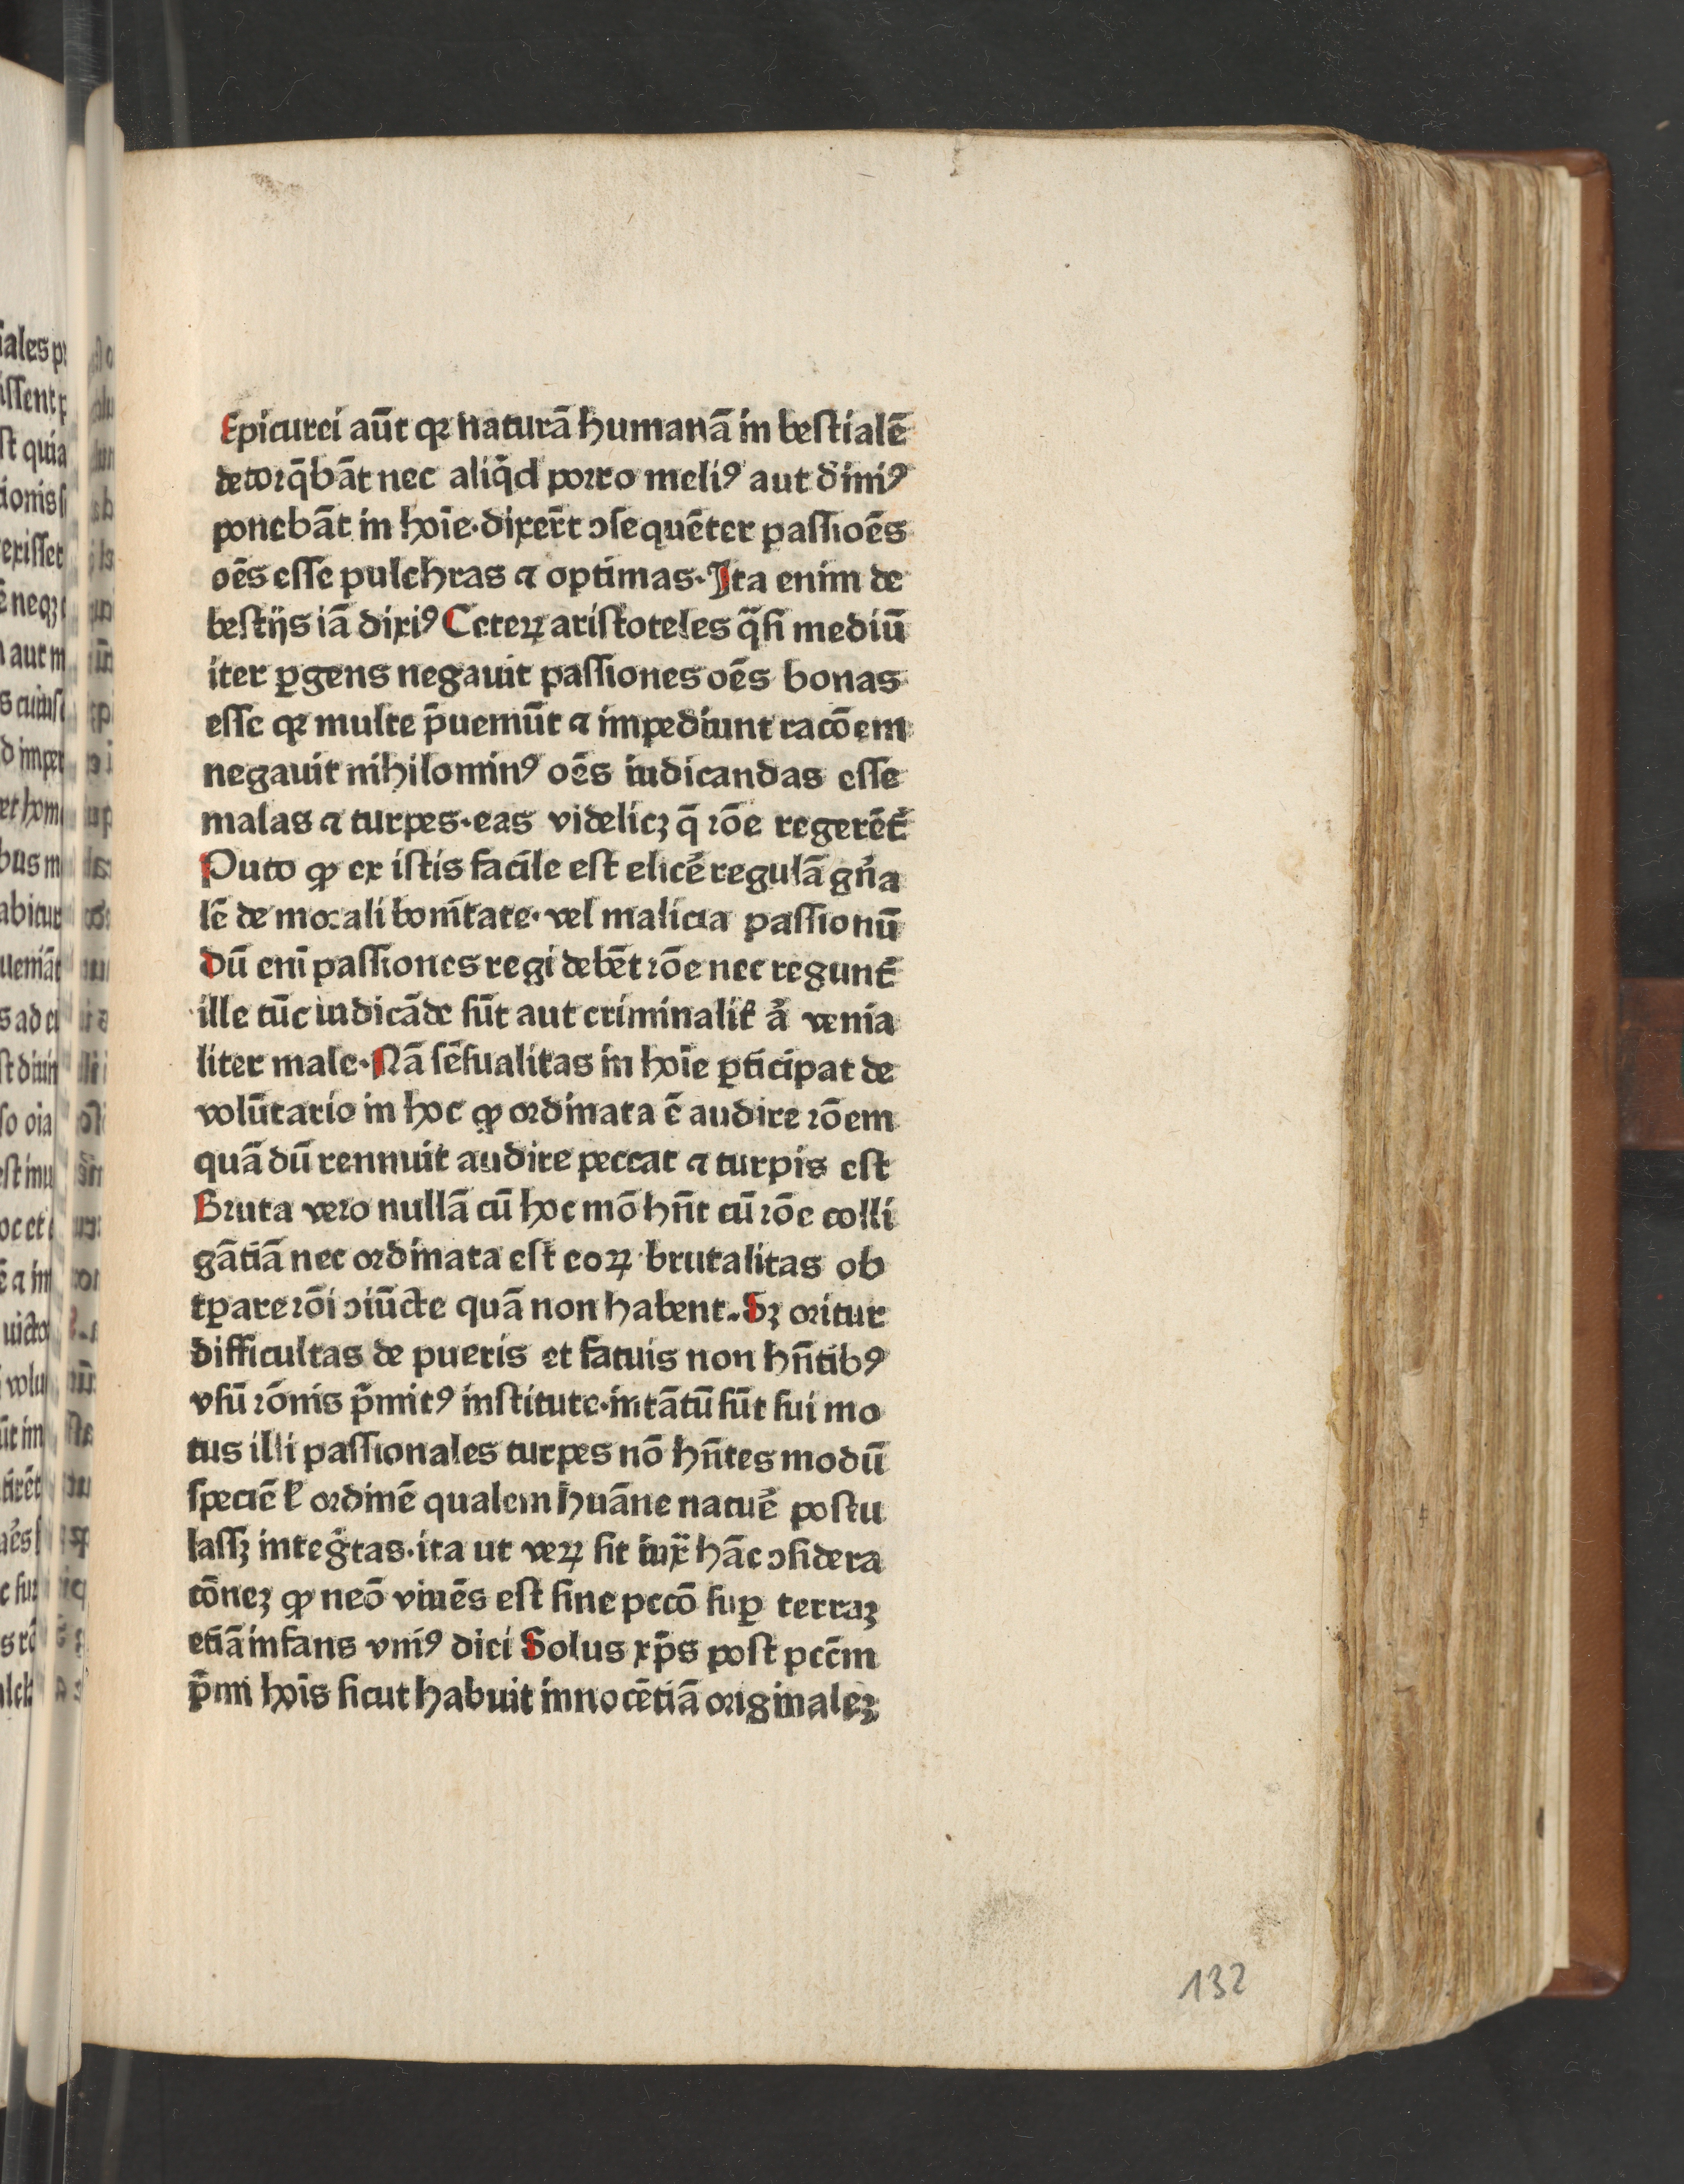 Epicurei aūt qꝛ naturā humanā in beſtialē
detorq̄bāt nec aliq̇d porro meliꝰ aut ðiniꝰ
ponebāt in hoīe·dixer̄t ↄſequēter paſſioēs
oēs eſſe pulchras ⁊ optimas·Ita enim de
beſtijs iā dixiꝰ Ceteꝝ ariſtoteles q̈ſi mediū
iter ꝑgens negauit paſſiones oēs bonas
eſſe qꝛ multe p̄ueniūt ⁊ impediunt racōem
negauit nihilominꝰ oēs iudicandas eſſe
malas ⁊ turpes·eas videlicꝫ q̄ rōe regerēt᷑
Puto ꝙ ex iſtis facile eſt elicē regulā gn̄a
lē de morali bonītate·vel malicia paſſionū
dū enī paſſiones regi debēt rōe nec regunt᷑
ille tūc iudicāde ſūt aut criminalit᷑ a̓ venia
liter male·Nā ſēſualitas in hoīe ꝑticipat de
volūtario in hoc ꝙ ordinata ē audire rōem
quā dū rennuit audire peccat ⁊ turpis eſt
Bruta vero nullā cū hoc mō hn̄t cū rōe colli
gātiā nec ordinata eſt eoꝝ brutalitas ob
tꝑare rōi ↄiūcte quā non habent·Sꝫ oritur
difficultas de pueris et fatuis non hn̄tibꝰ
vſū rōnis p̄mitꝰ inſtitute·intātū ſūt ſui mo
tus illi paſſionales turpes nō hn̄tes modū
ſpeciē ł ordinē qualem huāne natuē poſtu
laſſꝫ integ̓tas·ita ut veꝝ ſit iux̄ hāc ↄſidera
cōneꝫ ꝙ neō viuēs eſt ſine pccō ſuꝑ terraꝫ
etiā infans vniꝰ diei Solus xp̄s poſt pcc̄m
p̄mi hoīs ſicut habuit innocētiā originaleꝫ
132